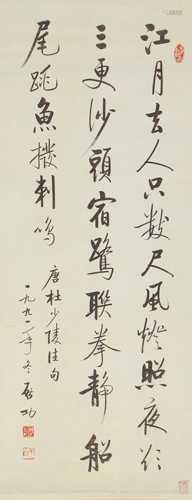 江月去人只數尺風燈照夜欲
三更沙頭宿鷺聯拳靜船
尾跳魚撥刺鳴
唐杜少陵佳句
一九九一年冬啟功